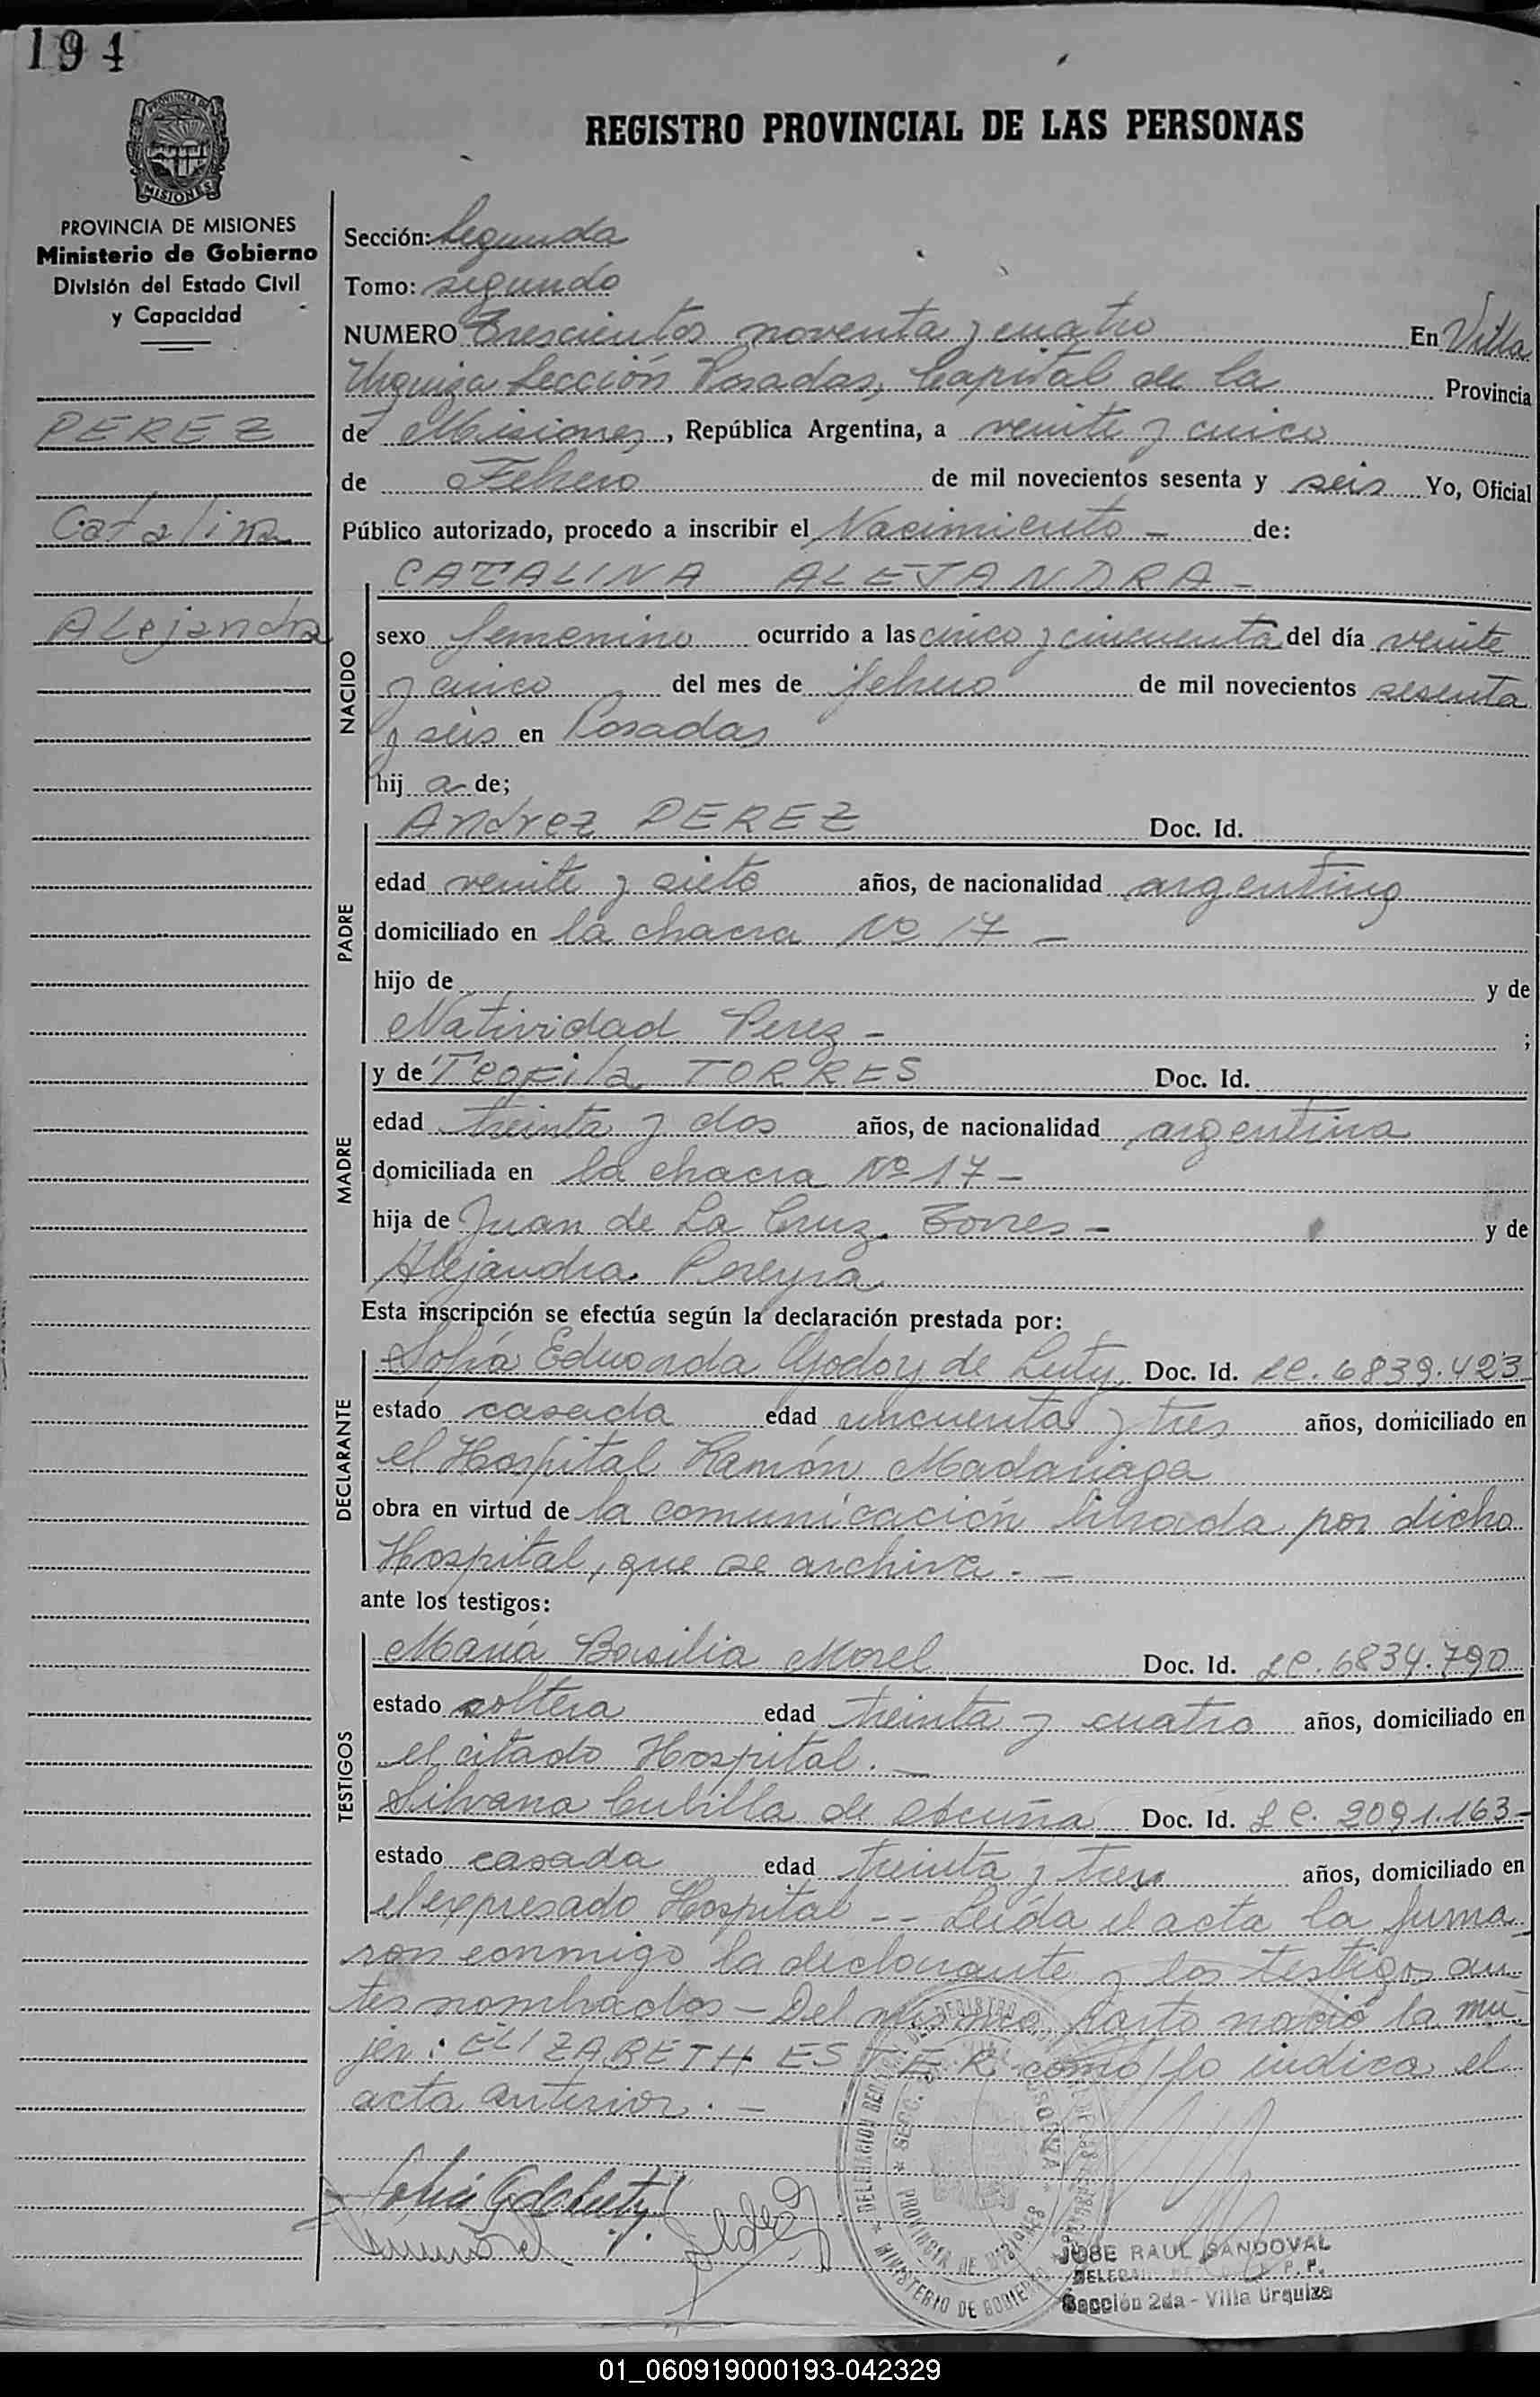 194
PROVINCIA DE MISIONES
PROVINCIA DE MISIONES
Ministerio de Gobierno
División del Estado Civil
y Capacidad
PEREZ
Catalina
Alejandra
REGISTRO PROVINCIAL DE LAS PERSONAS
Sección: Segunda
Tomo: segundo
NUMERO Trescientos noventa y cuatro En Villa
Urquiza Sección Posadas, Capital de la Provincia
de Misiones, República Argentina, a veinte y cinco
de Febrero de mil novecientos sesenta y seis Yo, Oficial
Público autorizado, procedo a inscribir el Nacimiento - de:
CATALINA ALEJANDRA -
NACIDO
sexo femenino ocurrido a las cinco y cincuenta del día veinte
y cinco del mes de febrero de mil novecientos sesenta
y seis en Posadas
hij a de;
PADRE
Andrez PEREZ Doc. Id.
edad veinte y siete años, de nacionalidad argentino
domiciliado en la chacra Nº 17 -
hijo de y de
Natividad Perez - ;
MADRE
y de Teofila TORRES Doc. Id.
edad treinta y dos años, de nacionalidad argentina
domiciliada en la chacra Nº 17 -
hija de Juan de La Cruz Torres - y de
Alejandra Pereyra
Esta inscripción se efectúa según la declaración prestada por:
DECLARANTE
Sofía Eduarda Godoy de Luty Doc. Id. LC. 6839.423
estado casada edad cincuenta y tres años, domiciliado en
el Hospital Ramón Madariaga
obra en virtud de la comunicación librada por dicho
Hospital, que se archiva. -
ante los testigos:
TESTIGOS
María Basilia Morel Doc. Id. LC. 6834.790
estado soltera edad treinta y cuatro años, domiciliado en
el citado Hospital. -
Silvana Cubilla de Acuña Doc. Id. LC. 2091.163-
estado casada edad treinta y tres años, domiciliado en
el expresado Hospital -- Leída el acta la firma-
ron conmigo la declarante y los testigos an-
tes nombrados - Del mismo parto nació la mu-
jer: ELIZABETH ESTER como lo indica el
acta anterior. -
PROVINCIA DE MISIONES
MINISTERIO DE GOBIERNO
JOSE RAUL SANDOVAL
Sección 2da - Villa Urquiza
01_060919000193-042329